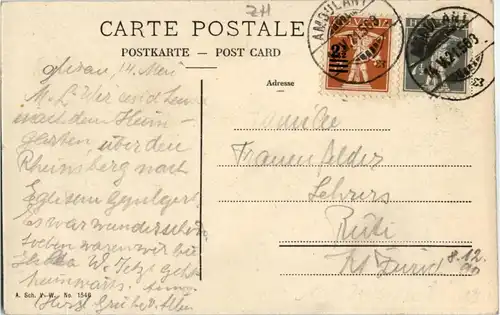 ZH
CARTE POSTALE
POSTKARTE - POST CARD
AMBULANT
AMBULANT
Adresse
14. Mai
M. L. Wir sind heute
nach dem Heim-
garten, über den
Rheinsberg nach
Eglisau gepilgert.
Es war wunderschön
soeben waren wir bei
W. Jetzt geht's
heimwärts.
Herzl. Grüße v. Allen
Familie
Frauenfelder
Lehrers
Rüti
Kt. Zürich
8.12.
A. Sch. V. W. No. 1546